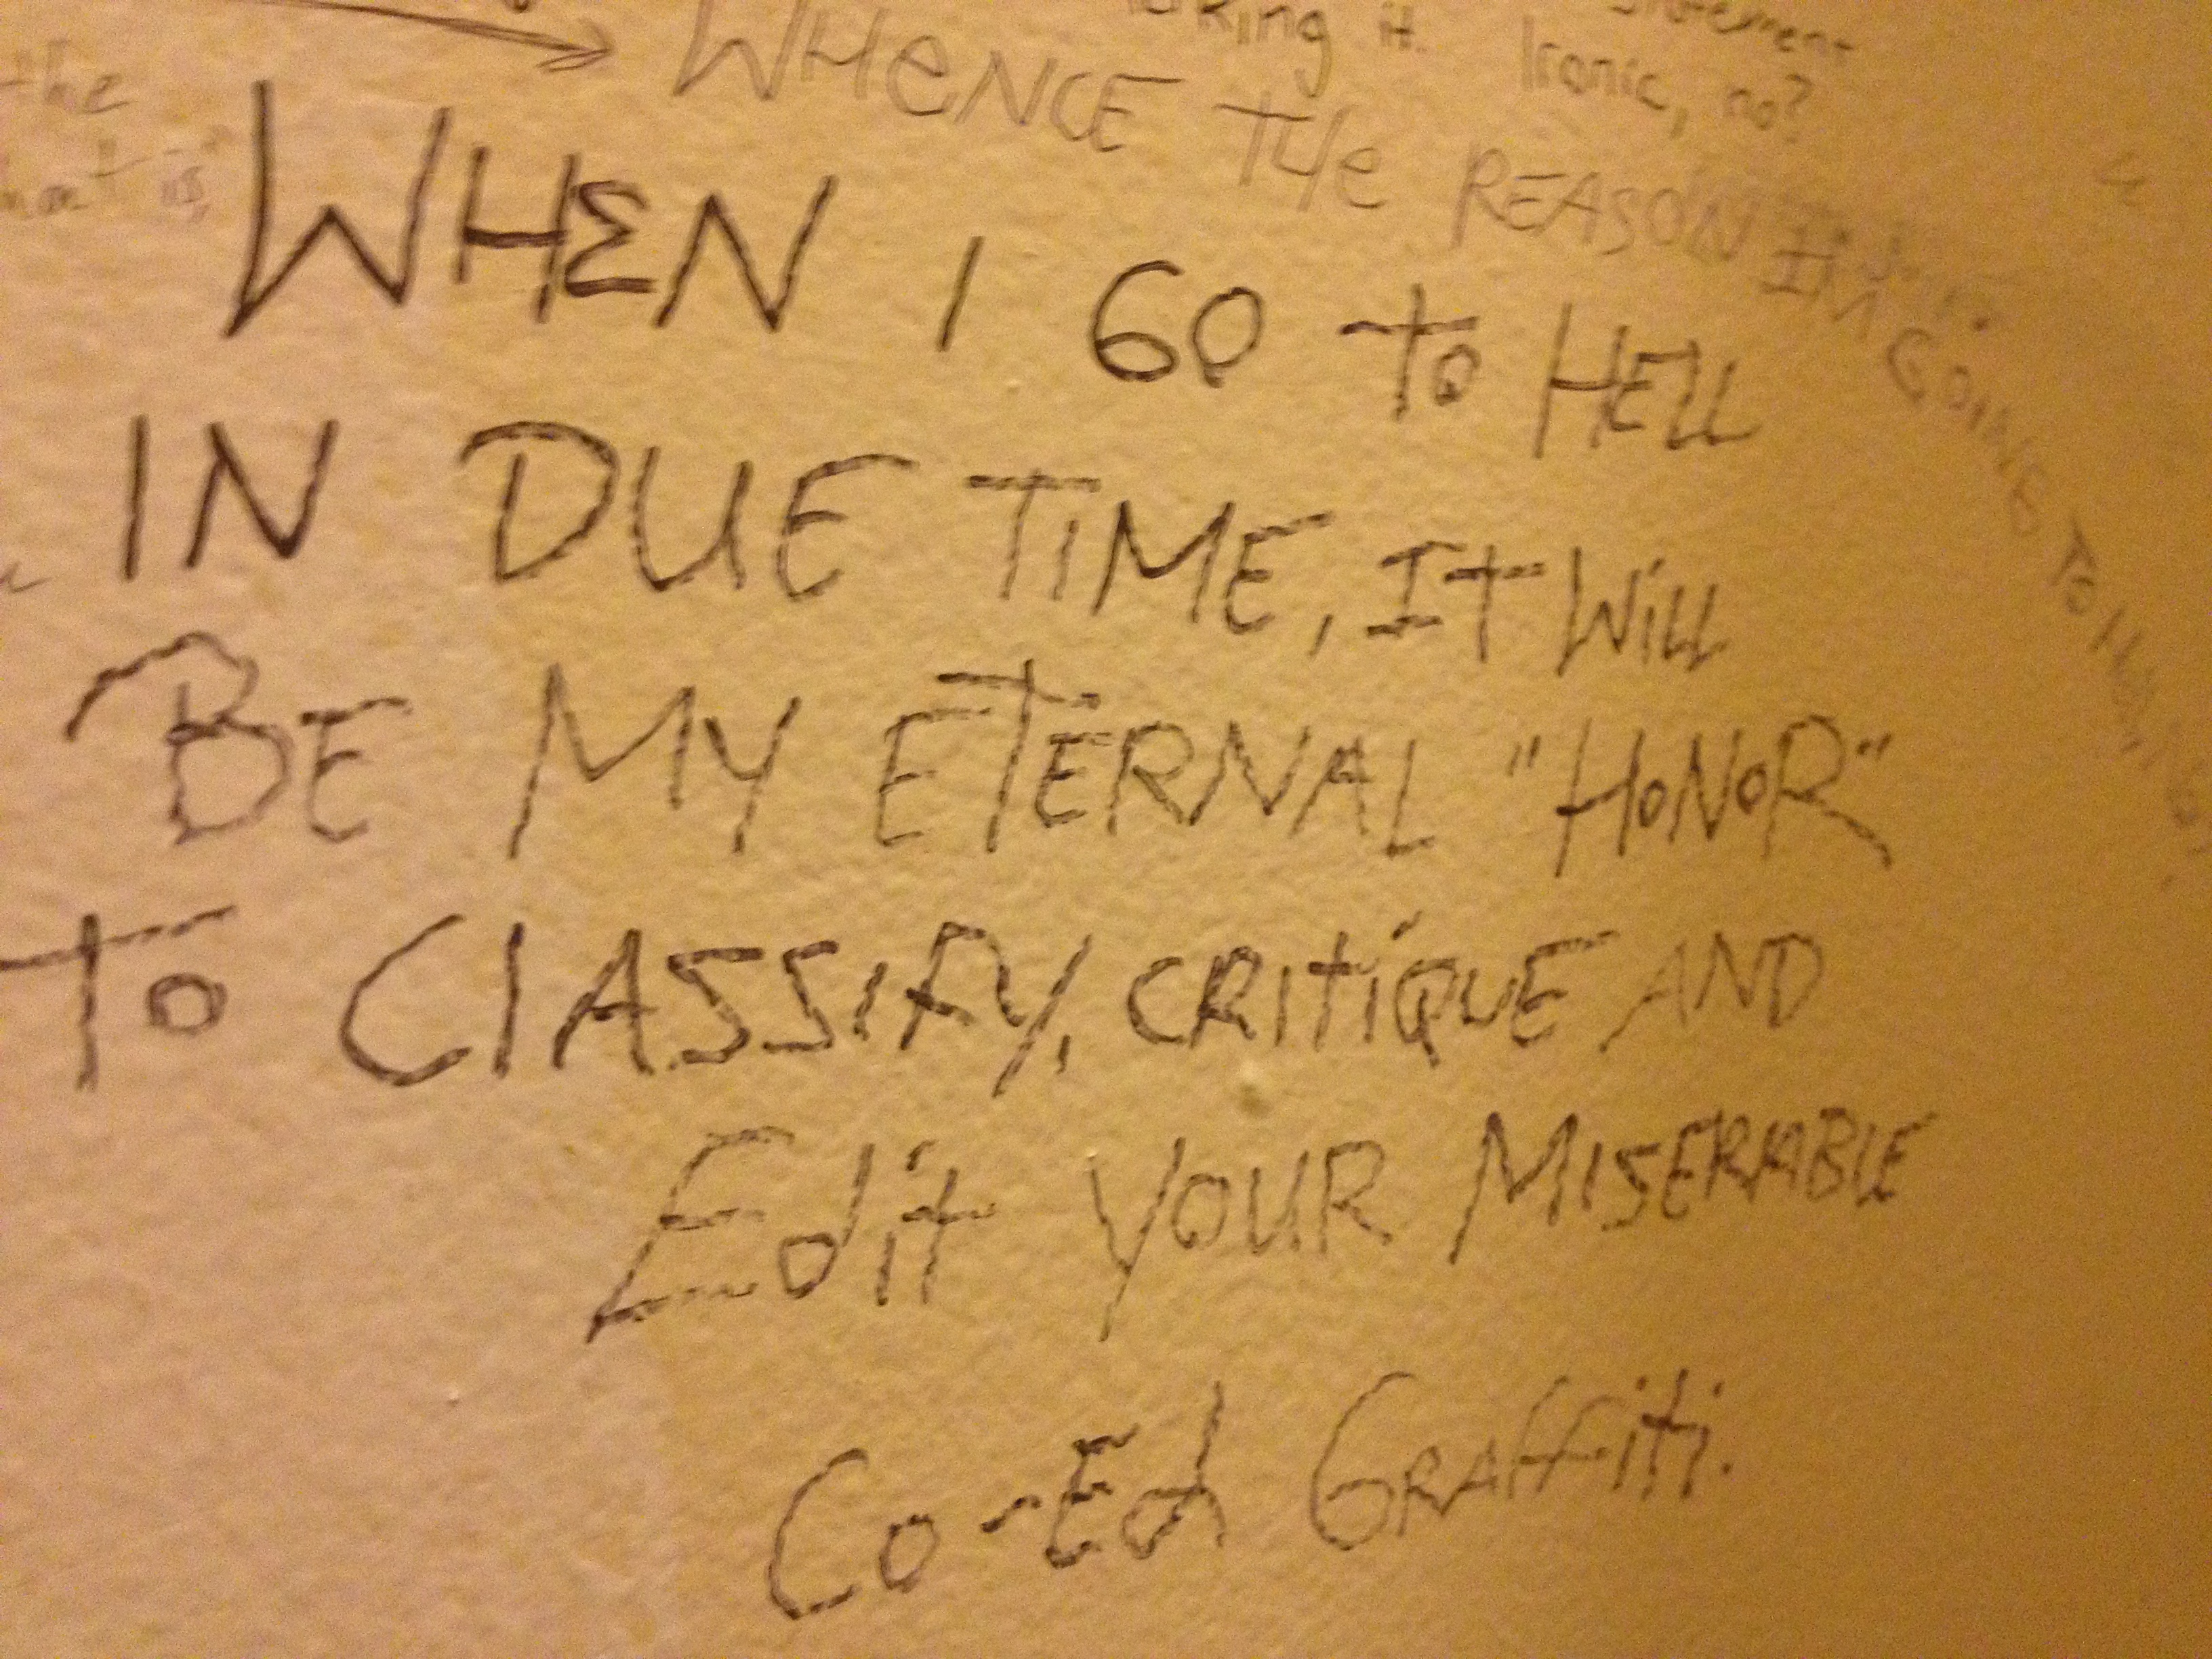 statement
king it.
Ironic, no?
the
WHENCE THE REASON I'M GOING TO
WHEN I GO TO HELL
IN DUE TIME, IT WILL
BE MY ETERNAL "HONOR"
TO ClASSIFY, CRITIQUE AND
Edit YOUR MISERABLE
Co-Ed GRAffiti.